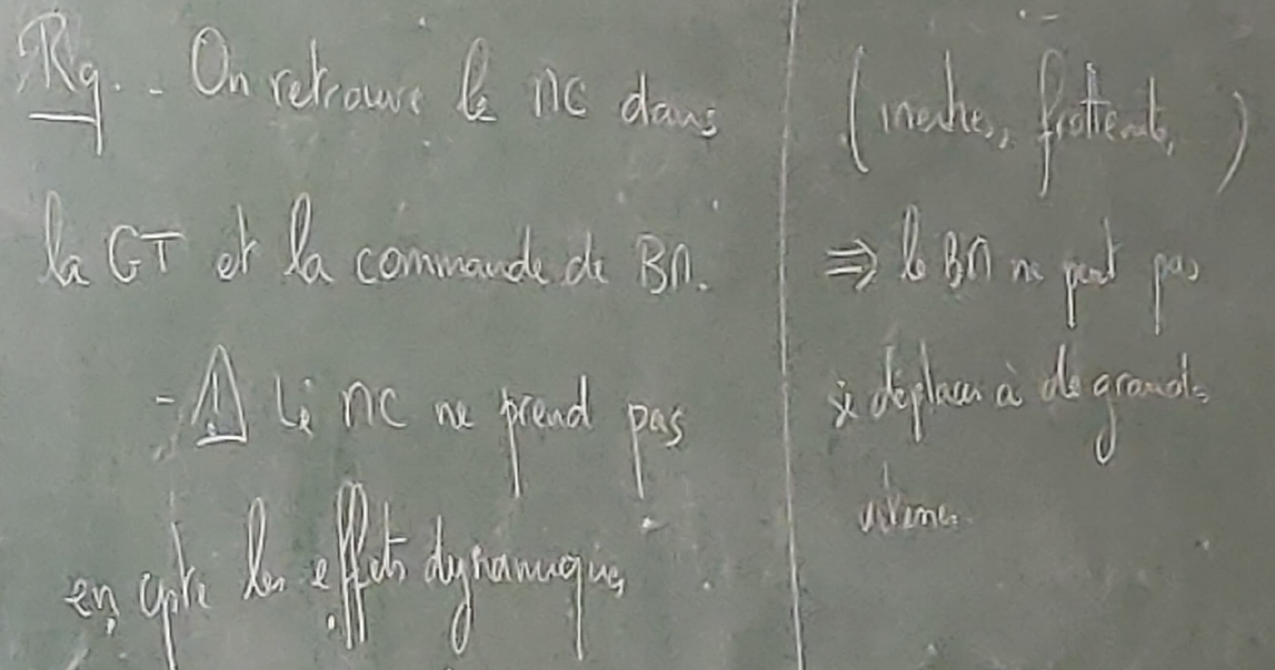 Rq. - On retrouve le MC dans
la GT et la commande de BM.
- ⚠ Le MC ne prend pas
en cpte les effets dynamiques
(inerties, frottements, )
⇒ le BM ne peut pas
se déplacer à de grandes
vitesses.